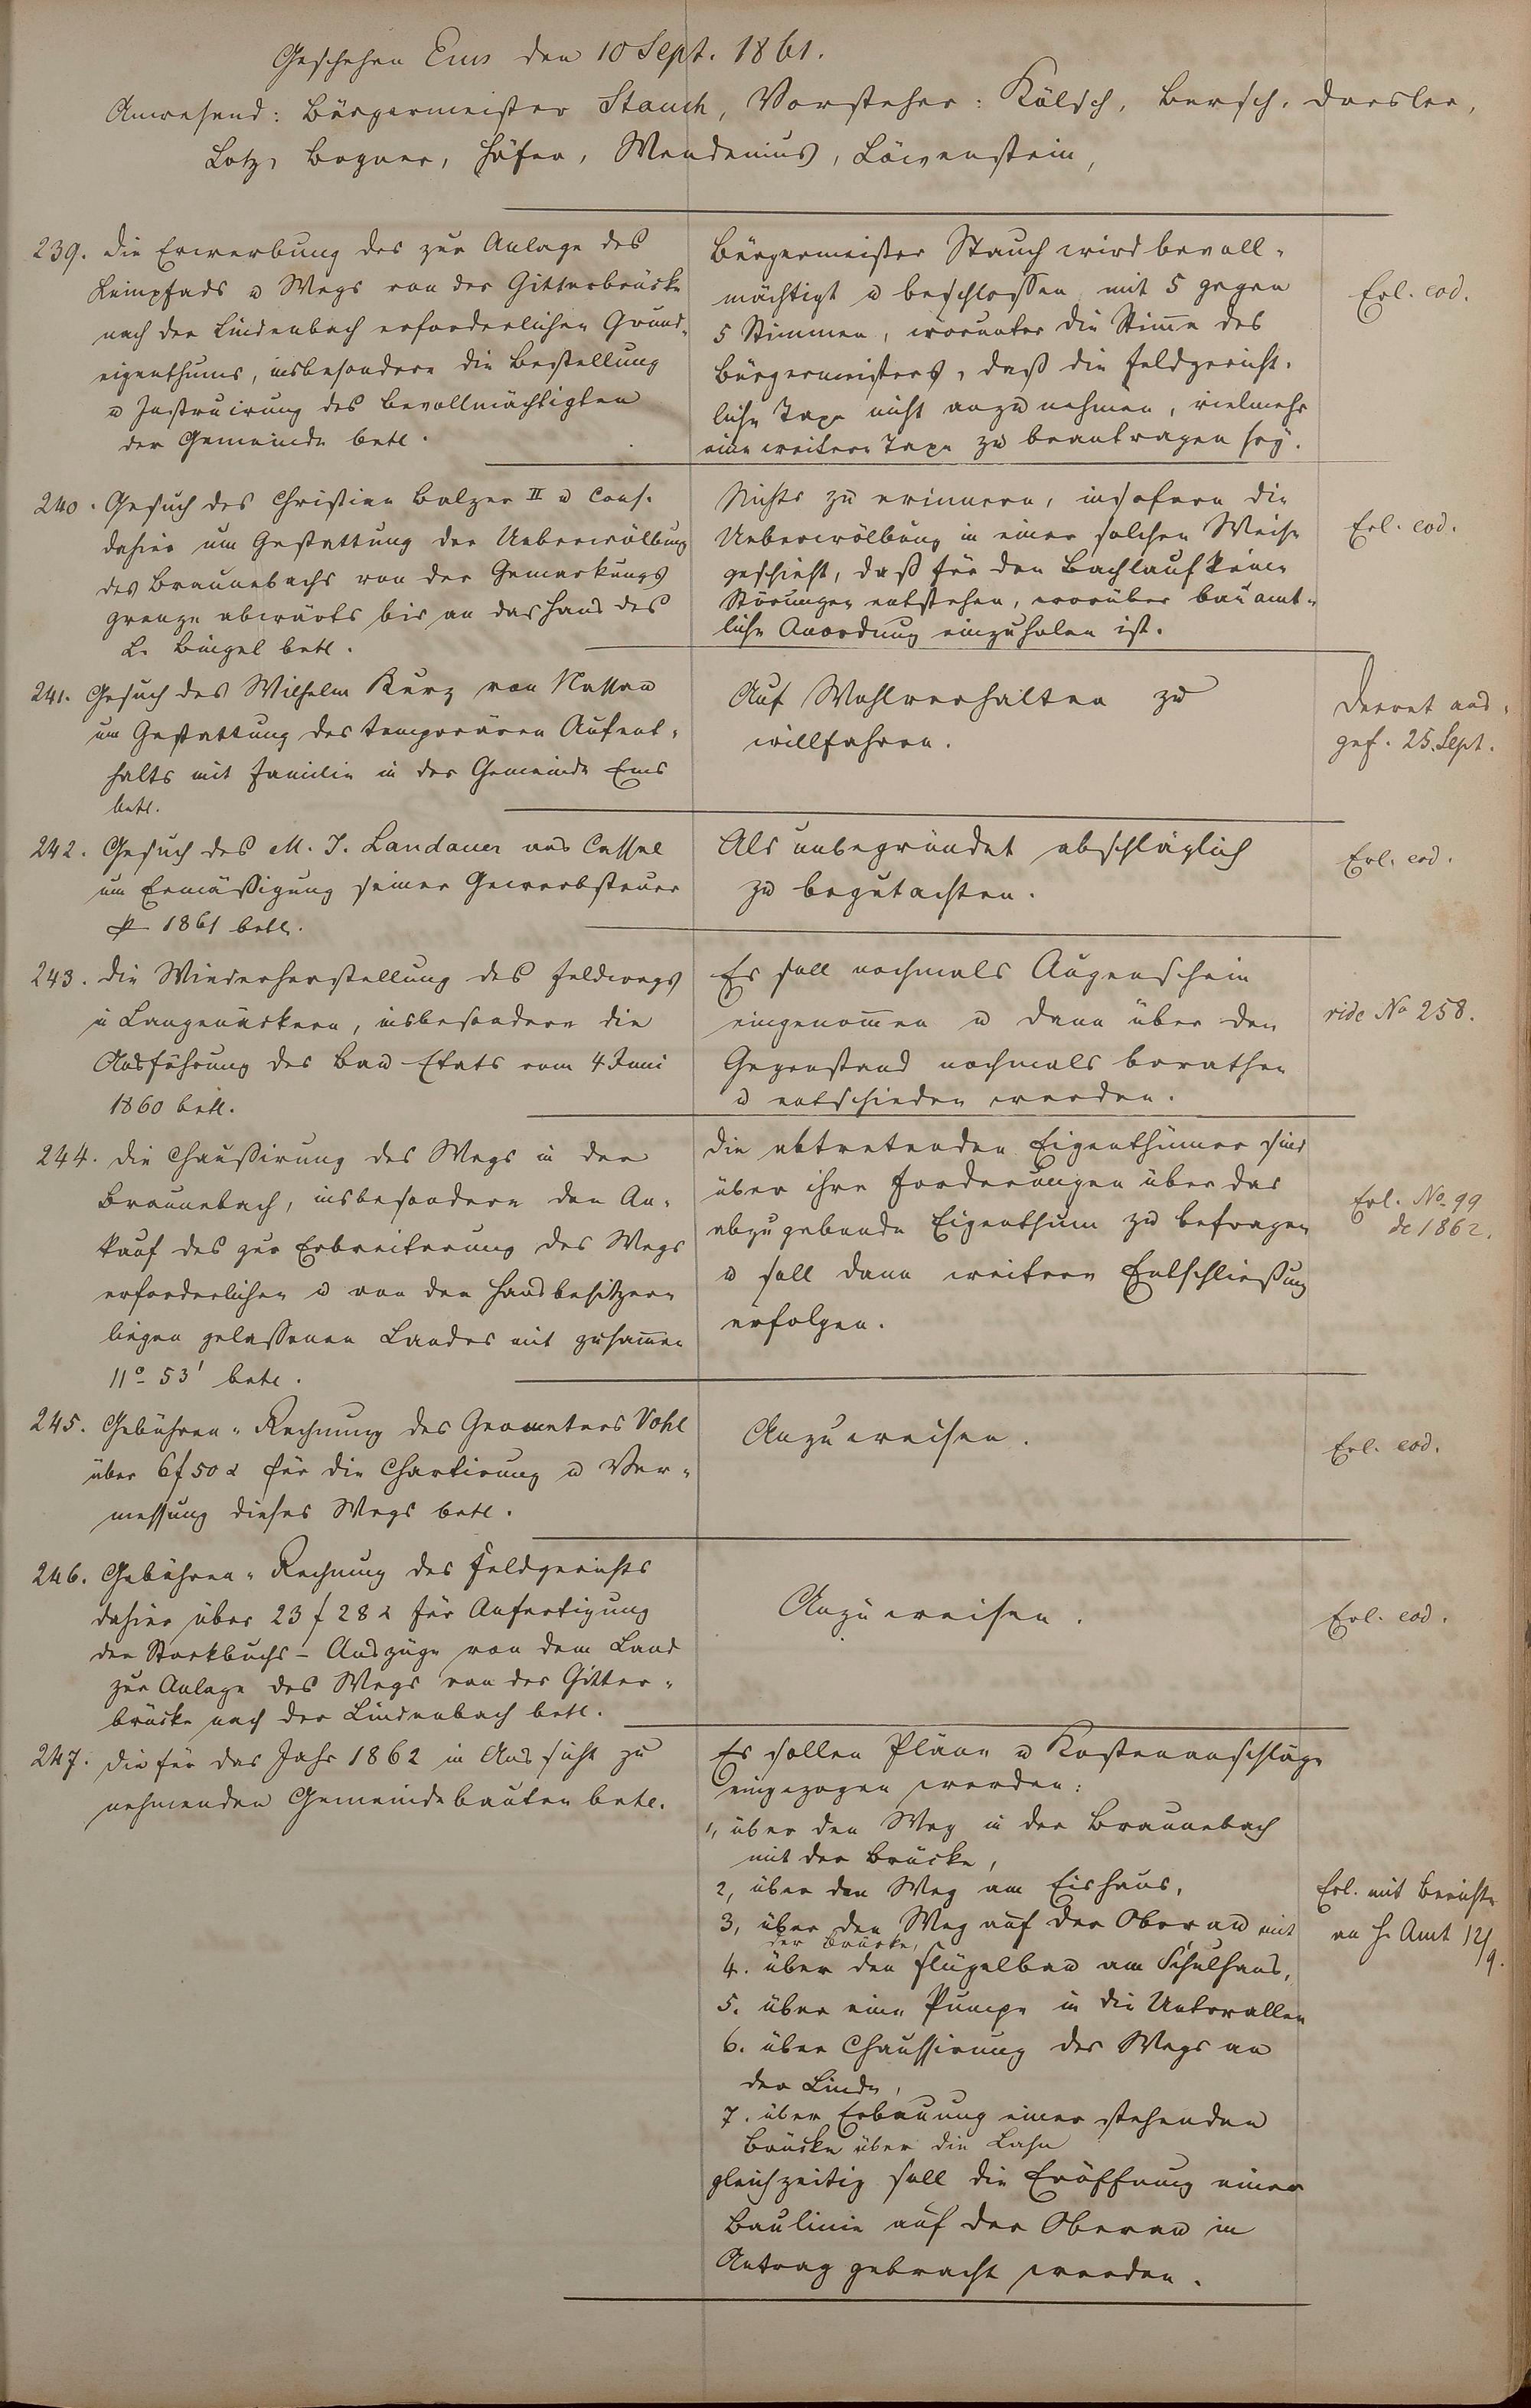 Geschehen Ems den 10 Sept. 1861.
Anwesend: Bürgermeister Stauch, Vorsteher: Kölsch, Bersch, Dresler,
Lotz, Bogner, Höfer, Wendenius, Löwenstein,
239. Die Erwerbung des zur Anlage des
Leinpfads u Wegs von der Gitterbrücke
nach der Lindenbach erforderlichen Grund-
eigenthums, insbesondere die Bestellung
u Instruirung des Bevollmächtigten
der Gemeinde betl.
Bürgermeister Stauch wird bevoll-
mächtigt u beschlossen mit 5 gegen
5 Stimmen, worunter die Stimme des
Bürgermeisters, daß die feldgericht-
liche Taxe nicht anzunehmen, vielmehr
eine weitere Taxe zu beantragen sey.
Erl. eod.
240. Gesuch des Christian Balzer II u Cons.
dahier um Gestattung der Ueberwölbung
des Braunebachs von der Gemarkungs
grenze abwärts bis an das Haus des
L. Bingel betl.
Nichts zu erinnern, insofern die
Ueberwölbung in einer solchen Weise
geschieht, daß für den Bachlauf keine
Störungen entstehen, worüber bauamt-
liche Anordnung einzuholen ist.
Erl. eod.
241. Gesuch des Wilhelm Kurz von Nassau
um Gestattung des temporären Aufent-
halts mit Familie in der Gemeinde Ems
betl.
Auf Wohlverhalten zu
willfahren.
Decret aus-
gef. 25. Sept.
242. Gesuch des M. J. Landauer aus Cassel
um Ermäßigung seiner Gewerbsteuer
p 1861 betl.
Als unbegründet abschläglich
zu begutachten.
Erl. eod.
243. Die Wiederherstellung des Feldwegs
in Langenäckern, insbesondere die
Ausführung des Bau-Etats vom 4 Juni
1860 betl.
Es soll nochmals Augenschein
eingenommen u dann über den
Gegenstand nochmals berathen
u entschieden werden.
vide No 258.
244. Die Chaußirung des Wegs in der
Braunebach, insbesondere den An-
kauf des zur Erbreiterung des Wegs
erforderlichen u von den Hausbesitzern
liegen gelassenen Landes mit zusammen
11° 53' betl.
Die abtretenden Eigenthümer sind
über ihre Forderungen über das
abzugebende Eigenthum zu befragen
u soll dann weitere Entschließung
erfolgen.
Erl. No 99
de 1862.
245. Gebühren-Rechnung des Geometers Vohl
über 6 f 50 x für die Chartirung u Ver-
messung dieses Wegs betl.
Anzuweisen.
Erl. eod.
246. Gebühren-Rechnung des Feldgerichts
dahier über 23 f 28 x für Anfertigung
der Stockbuchs-Auszüge von dem Land
zur Anlage des Wegs von der Gitter-
brücke nach der Lindenbach betl.
Anzuweisen.
Erl. eod.
247. Die für das Jahr 1862 in Aussicht zu
nehmenden Gemeindebauten betl.
Es sollen Pläne u Kostenanschläge
eingezogen werden:
1, über den Weg in der Braunebach
mit der Brücke,
2, über den Weg am Eishaus,
3, über den Weg auf der Oberau mit
der Brücke,
4. über den Flügelbau am Schulhaus,
5. über eine Pumpe in die Unterallee
6. über Chaussirung des Wegs an
der Linde,
7. über Erbauung einer stehenden
Brücke über die Lahn
gleichzeitig soll die Eröffnung einer
Baulinie auf der Oberau in
Antrag gebracht werden.
Erl. mit Bericht
an H. Amt 12/9.